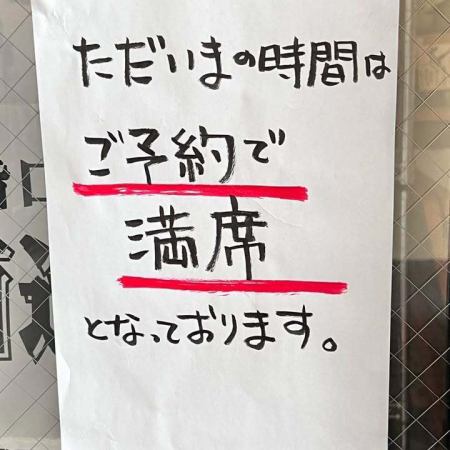 ただいまの時間は
ご予約で
満席
となっております。